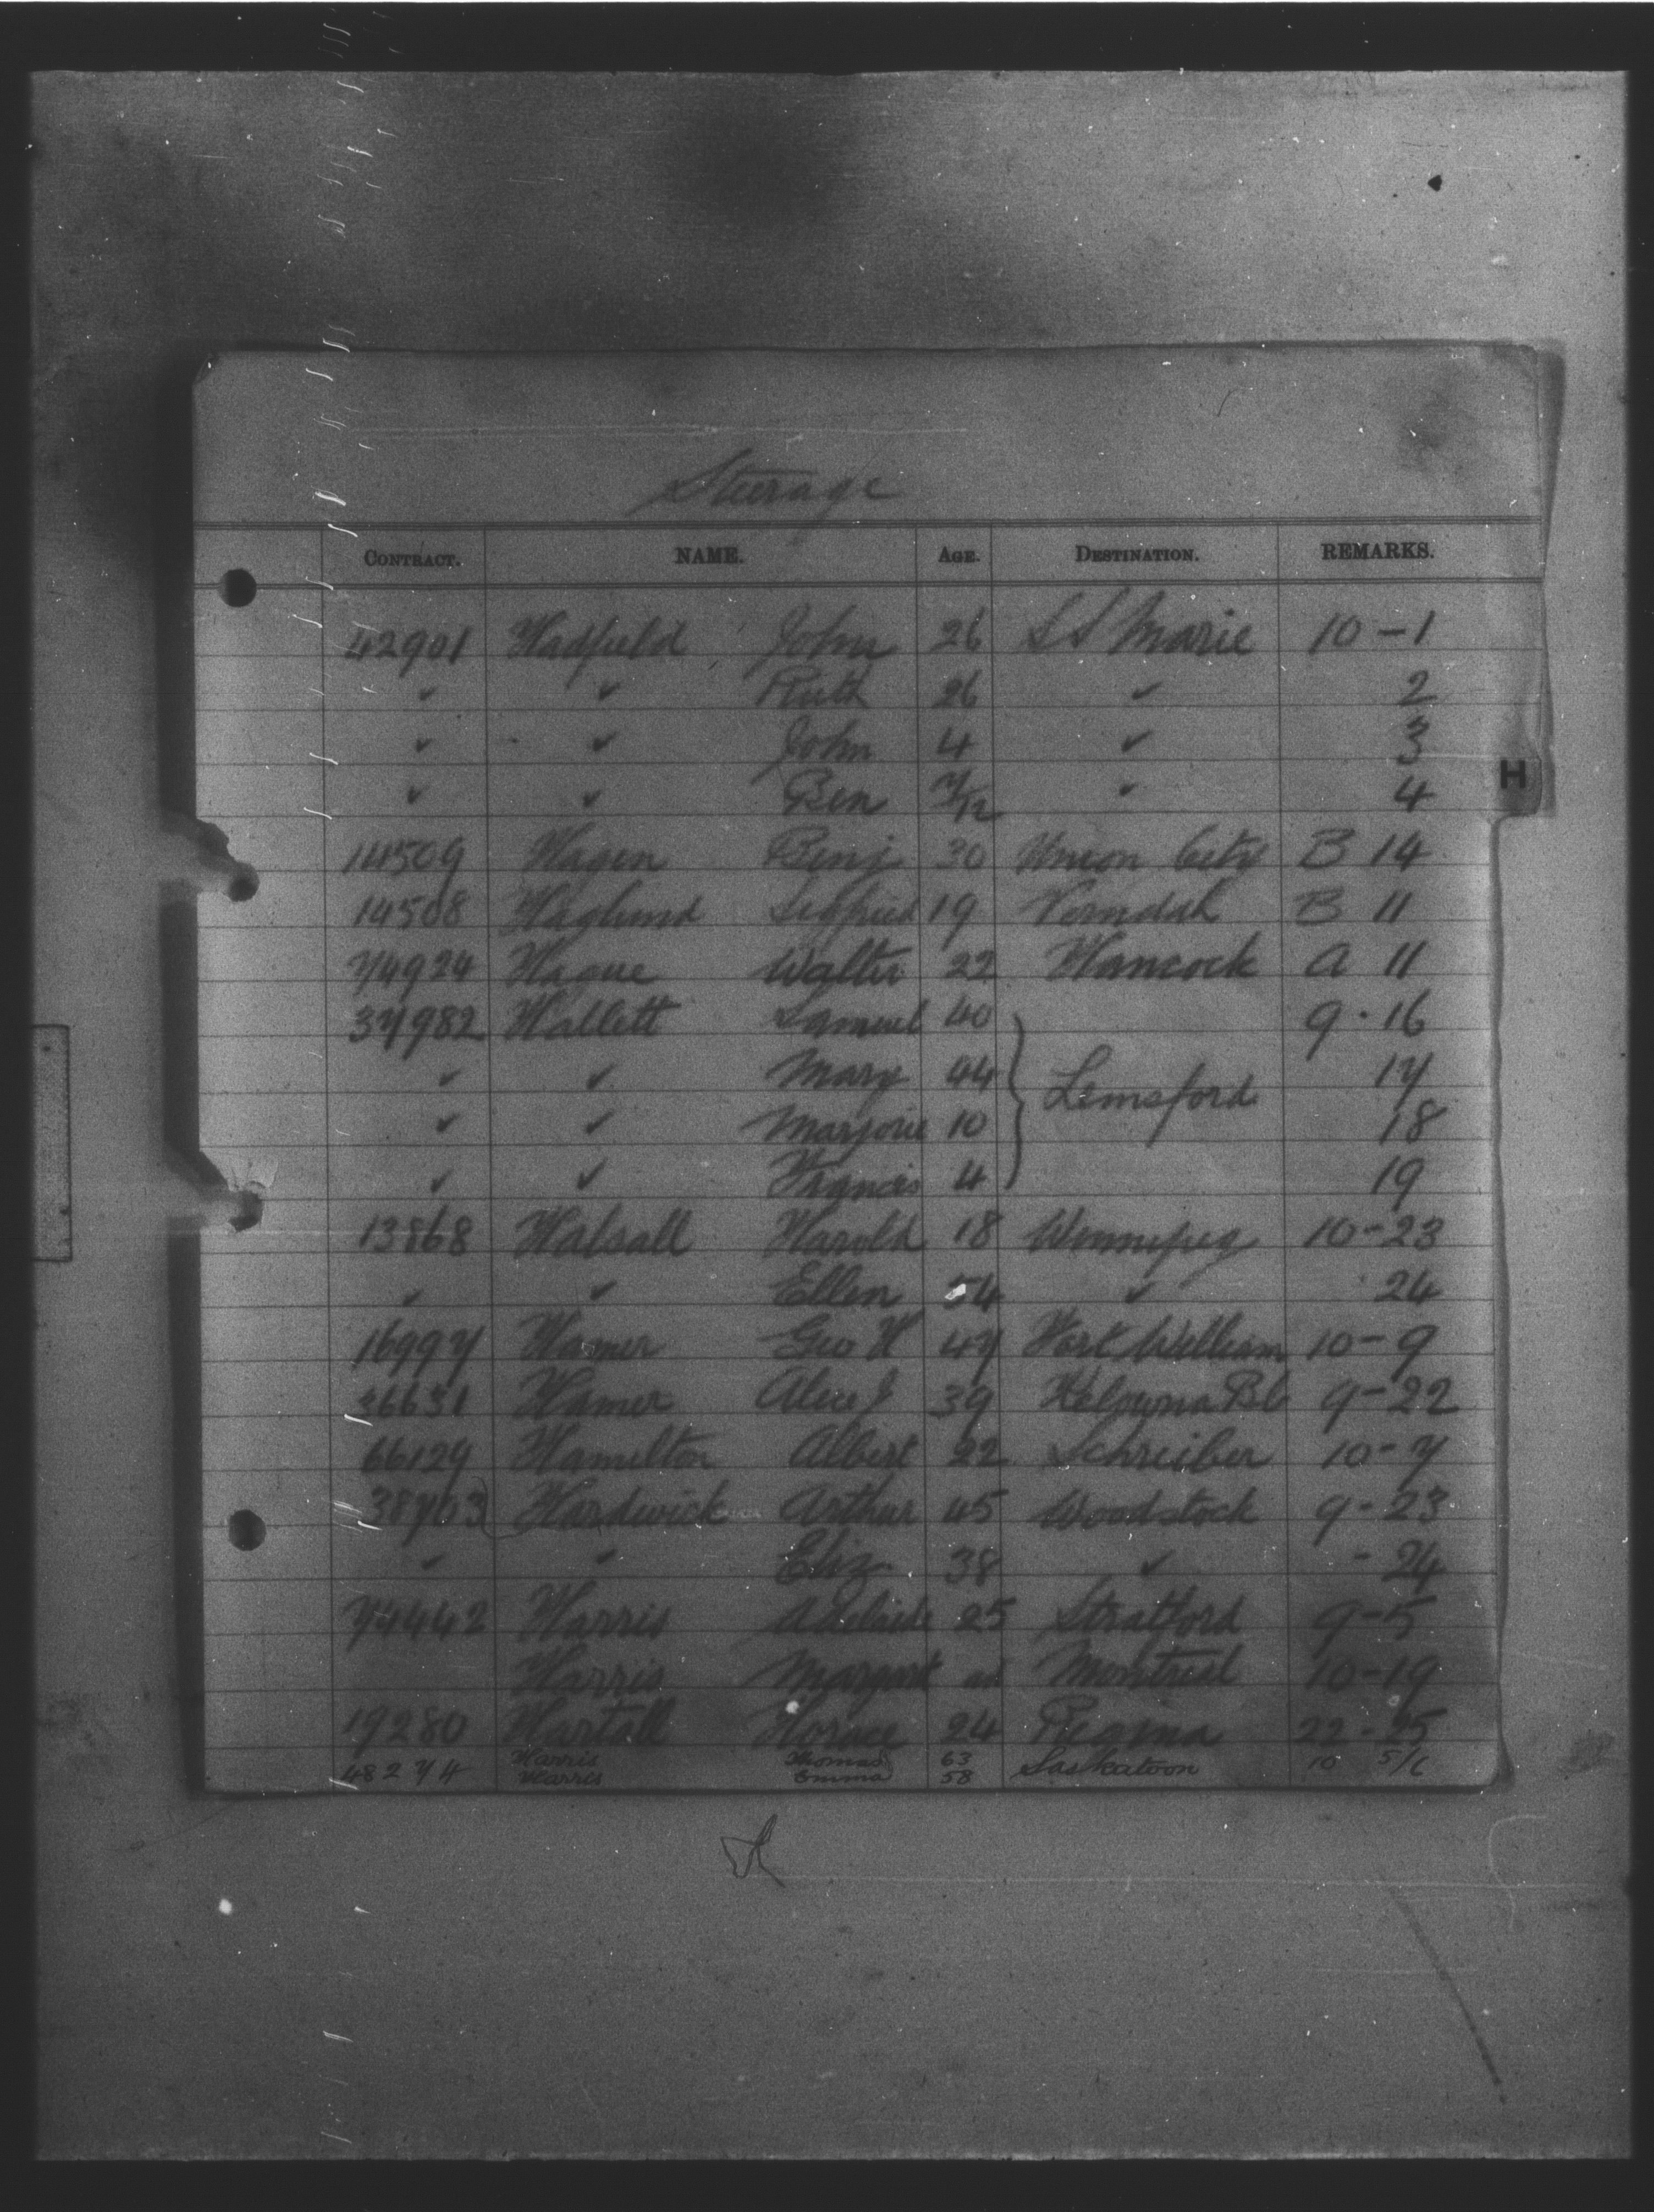 Steerage
CONTRACT. NAME. AGE. DESTINATION. REMARKS.
42901 Hadfield John 26 S S Marie 10-1
✓ ✓ Ruth 26 ✓ 2
✓ ✓ John 4 ✓ 3
✓ ✓ Ben 7/12 ✓ 4
H
14509 Hagen Benj 30 Union City B 14
14508 Haglund Sigfried 19 Verndah B 11
74924 Hague Walter 22 Hancock A 11
37982 Hallett Samuel 40 9-16
✓ ✓ Mary 44 Lemsford 17
✓ ✓ Marjorie 10 18
✓ ✓ Francis 4 19
13868 Halsall Harold 18 Winnipeg 10-23
✓ ✓ Ellen 54 ✓ 24
16997 Hamer Geo H 47 Fort William 10-9
36631 Hamer Alice J 39 Kelowna BC 9-22
66129 Hamilton Albert 22 Schreiber 10-7
38703 Hardwick Arthur 45 Woodstock 9-23
✓ ✓ Eliz 38 ✓ -24
74442 Harris Adelaide 25 Stratford 9-5
Harris Margaret ad Montreal 10-19
19280 Hartall Horace 24 Regina 22-25
Harris Thomas 63
48274 Harris Emma 58 Saskatoon 10 5/6